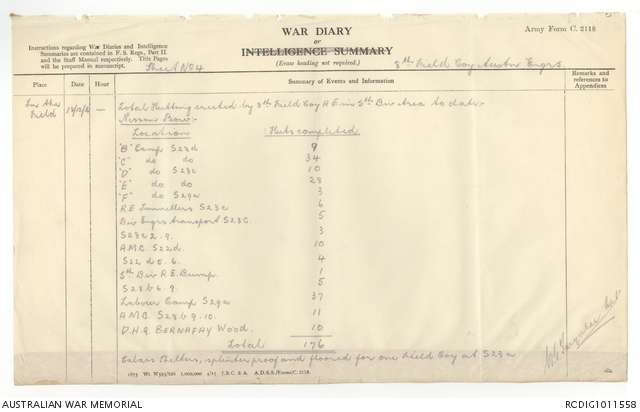 WAR DIARY
or
INTELLIGENCE SUMMARY
(Erase heading not required.)
Army Form C. 2118
Instructions regarding War Diaries and Intelligence
Summaries are contained in F. S. Regs., Part II
and the Staff Manual respectively. Title Pages
will be prepared in manuscript.
Sheet No 4
8th Field Coy Austn Engrs.
Place
Date
Hour
Summary of Events and Information
Remarks and references to Appendices
In the Field
Total Hutting erected by 8th Field Coy A E in 5th Div Area to date:-
Nissen Bow:-
Location Huts completed
"B" Camp S23d 9
"C" do do 34
"D" do S23c 10
"E" do do 28
"F" do S29a 3
R.E Tunnellers S23c 6
Div Engrs Transport S23c. 5
S23c 2.9. 3
A.M.C. S22d. 10
S22d 5.6. 4
5th Div R.E. Dump. 1
S28b 6.9. 5
Labour Camp S29a 37
A.M.C. S28b 9.10. 11
D.H.Q. BERNAFAY WOOD. 10
Total 176
shelters, splinter proof and floored for one Field Coy at S23a
1875 Wt. W593/826 1,000,000 4/15 J.B.C. & A. A.D.S.S./Forms/C. 2118.
AUSTRALIAN WAR MEMORIAL
RCDIG1011558